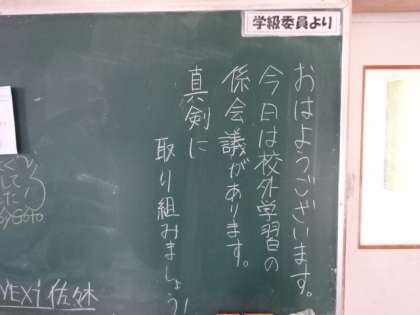 学級委員より
おはようございます。
今日は校外学習の
係会議があります。
真剣に
取り組みましょう!
NEXT 佐々木